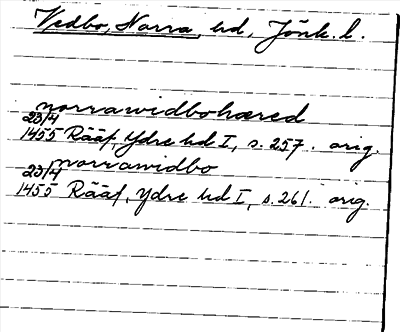 Vedbo, Norra, hd, Jönk. l.
norrawidbohæred
23/4
1455 Rääf, Ydre hd I, s. 257. orig.
norrawidbo
23/4
1455 Rääf, Ydre hd I, s. 261. orig.